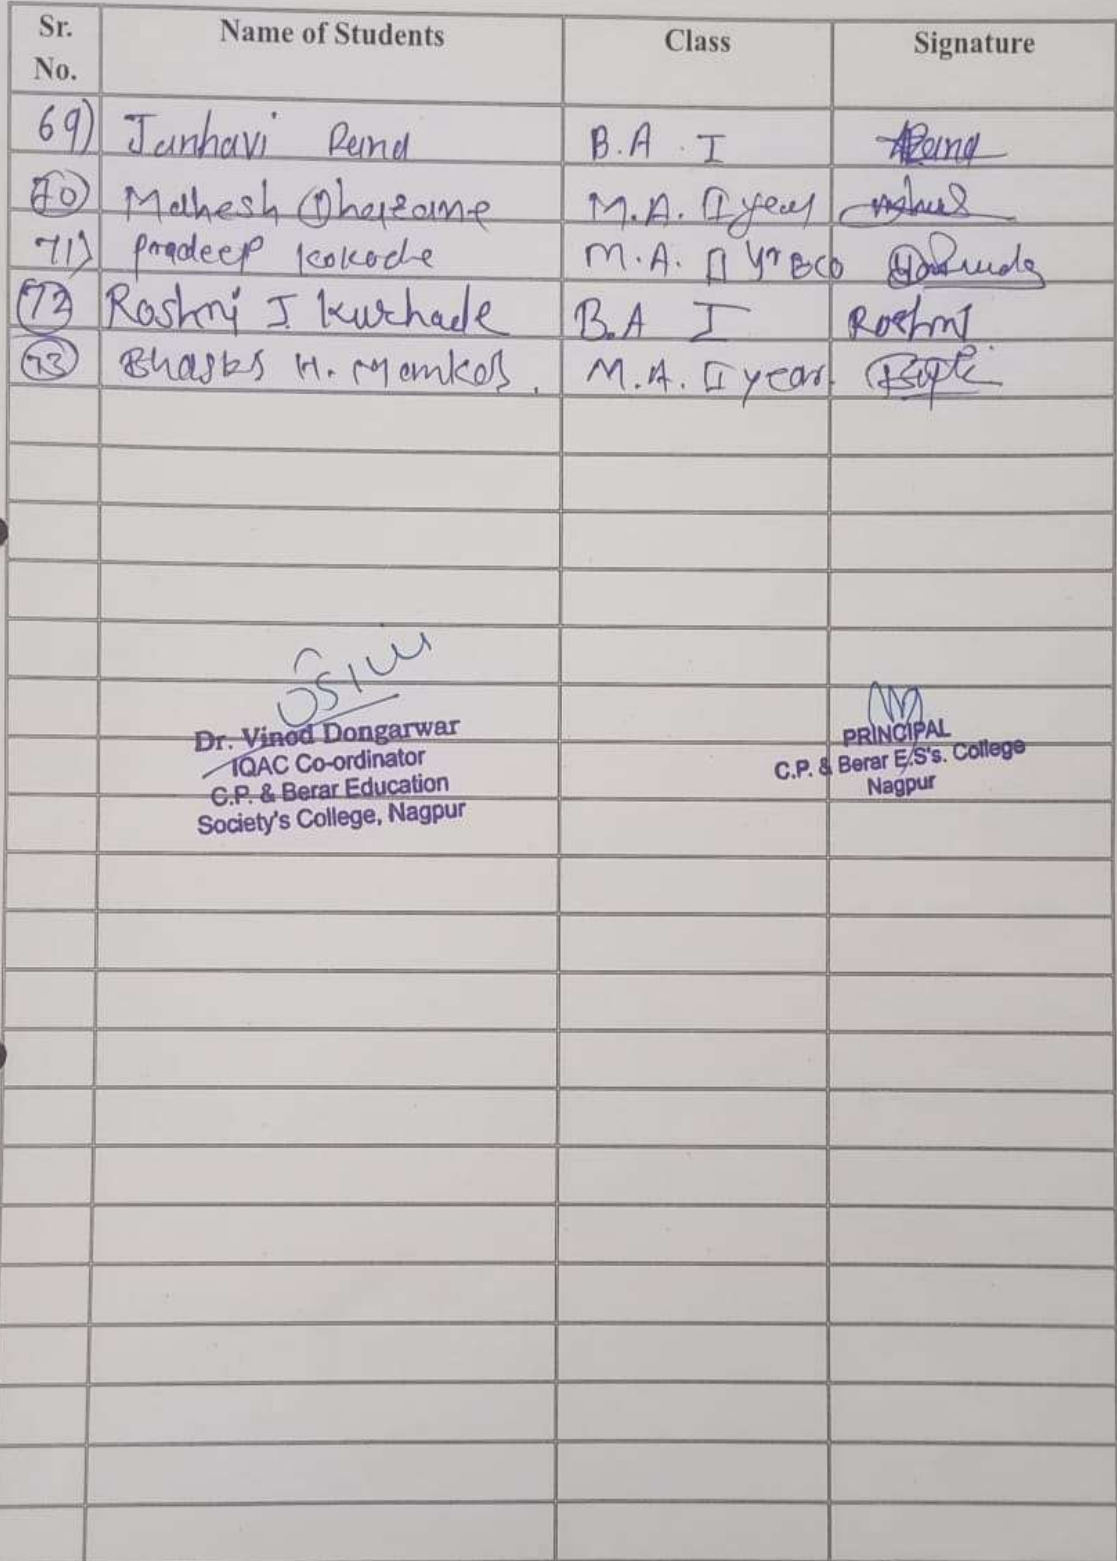 Sr. No. Name of Students Class Signature
69) Janhavi Rand B.A. I Rand
70) Mahesh M.A. II year
71) Pradeep Kokode M.A. II yr ECO
72 Roshni J Kurhade B.A I Roshni
73 H. M.A. II year
Dr. Vinod Dongarwar
IQAC Co-ordinator
C.P. & Berar Education
Society's College, Nagpur
PRINCIPAL
C.P. & Berar E/S's. College
Nagpur